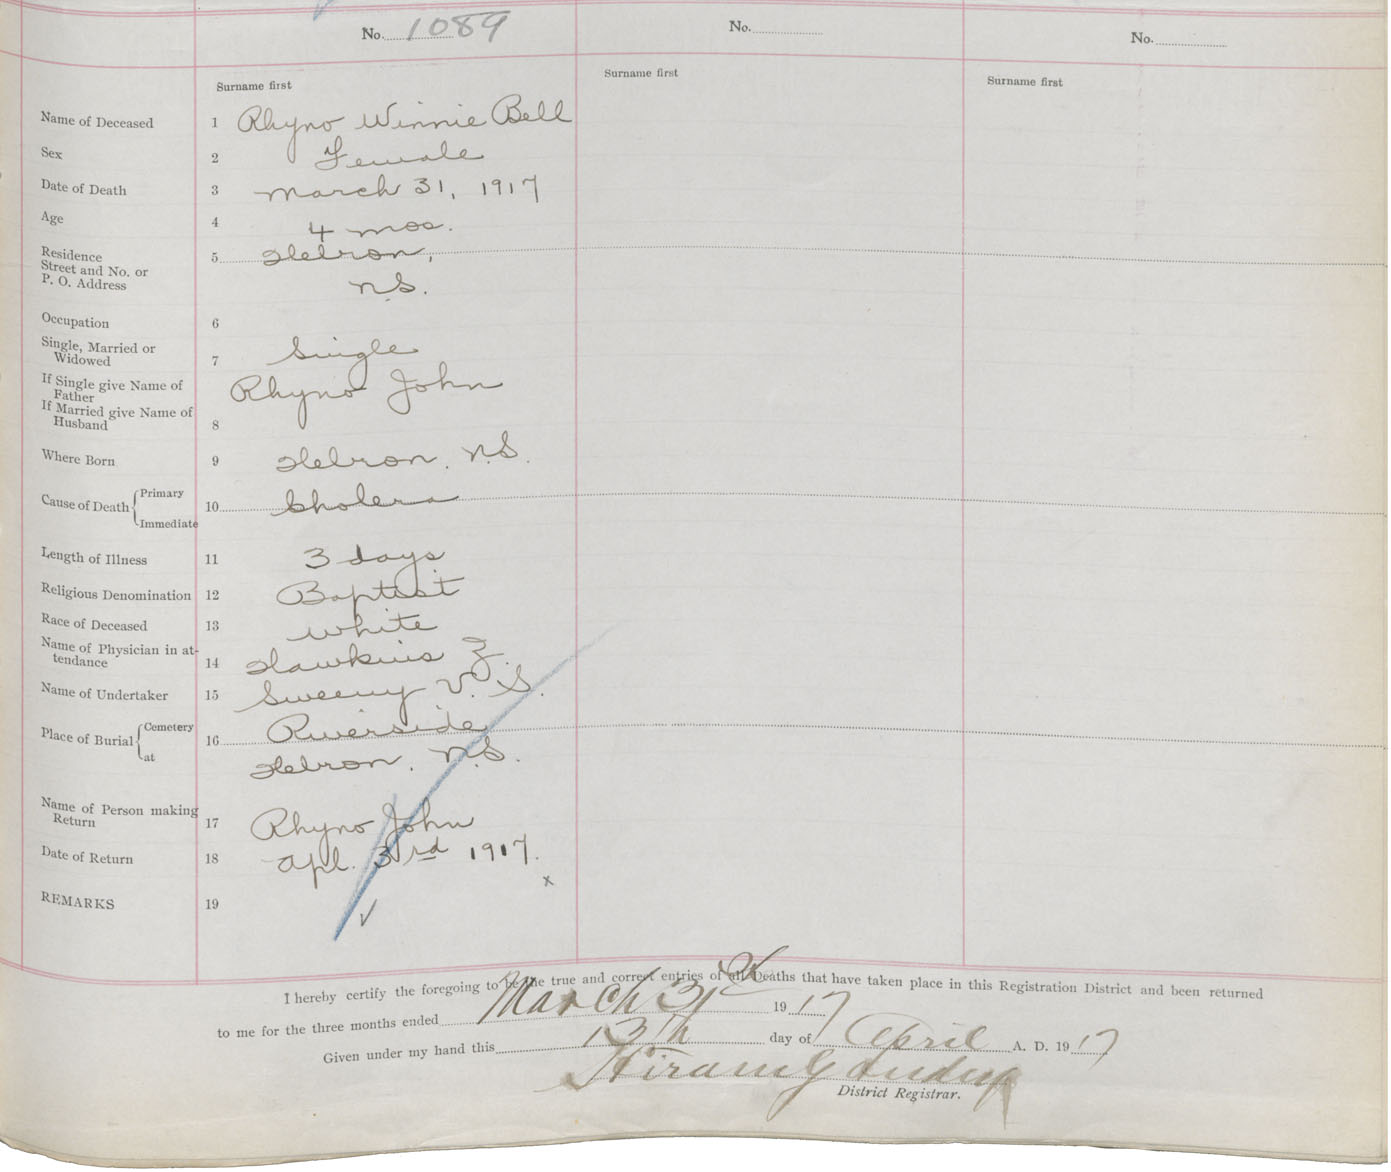 No. 1089 No. No.
Surname first Surname first Surname first
Name of Deceased 1 Rhyno Winnie Bell
Sex 2 Female
Date of Death 3 March 31, 1917
Age 4 4 mos.
Residence 5 Hebron,
Street and No. or
P. O. Address N.S.
Occupation 6
Single, Married or
Widowed 7 Single
If Single give Name of
Father Rhyno John
If Married give Name of
Husband 8
Where Born 9 Hebron, N.S.
Cause of Death { Primary
Immediate 10 Cholera
Length of Illness 11 3 days
Religious Denomination 12 Baptist
Race of Deceased 13 White
Name of Physician in at-
tendance 14 Hawkins Z.
Name of Undertaker 15 Sweeny V. S.
Place of Burial { Cemetery 16 Riverside
at Hebron, N.S.
Name of Person making
Return 17 Rhyno John
Date of Return 18 Apl. 3rd 1917.
x
REMARKS 19
I hereby certify the foregoing to be the true and correct entries of all Deaths that have taken place in this Registration District and been returned
to me for the three months ended March 31 1917
Given under my hand this 13th day of April A. D. 1917
Hiram G
District Registrar.